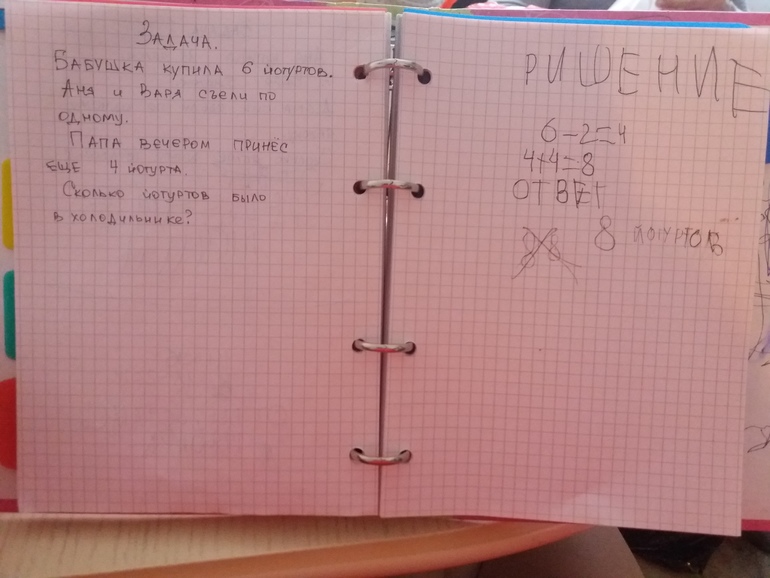 Задача.
Бабушка купила 6 йогуртов.
Аня и Варя съели по
одному.
Папа вечером принёс
еще 4 йогурта.
Сколько йогуртов было
в холодильнике?
РИШЕНИЕ
6-2=4
4+4=8
ОТВЕТ
8 йогуртов